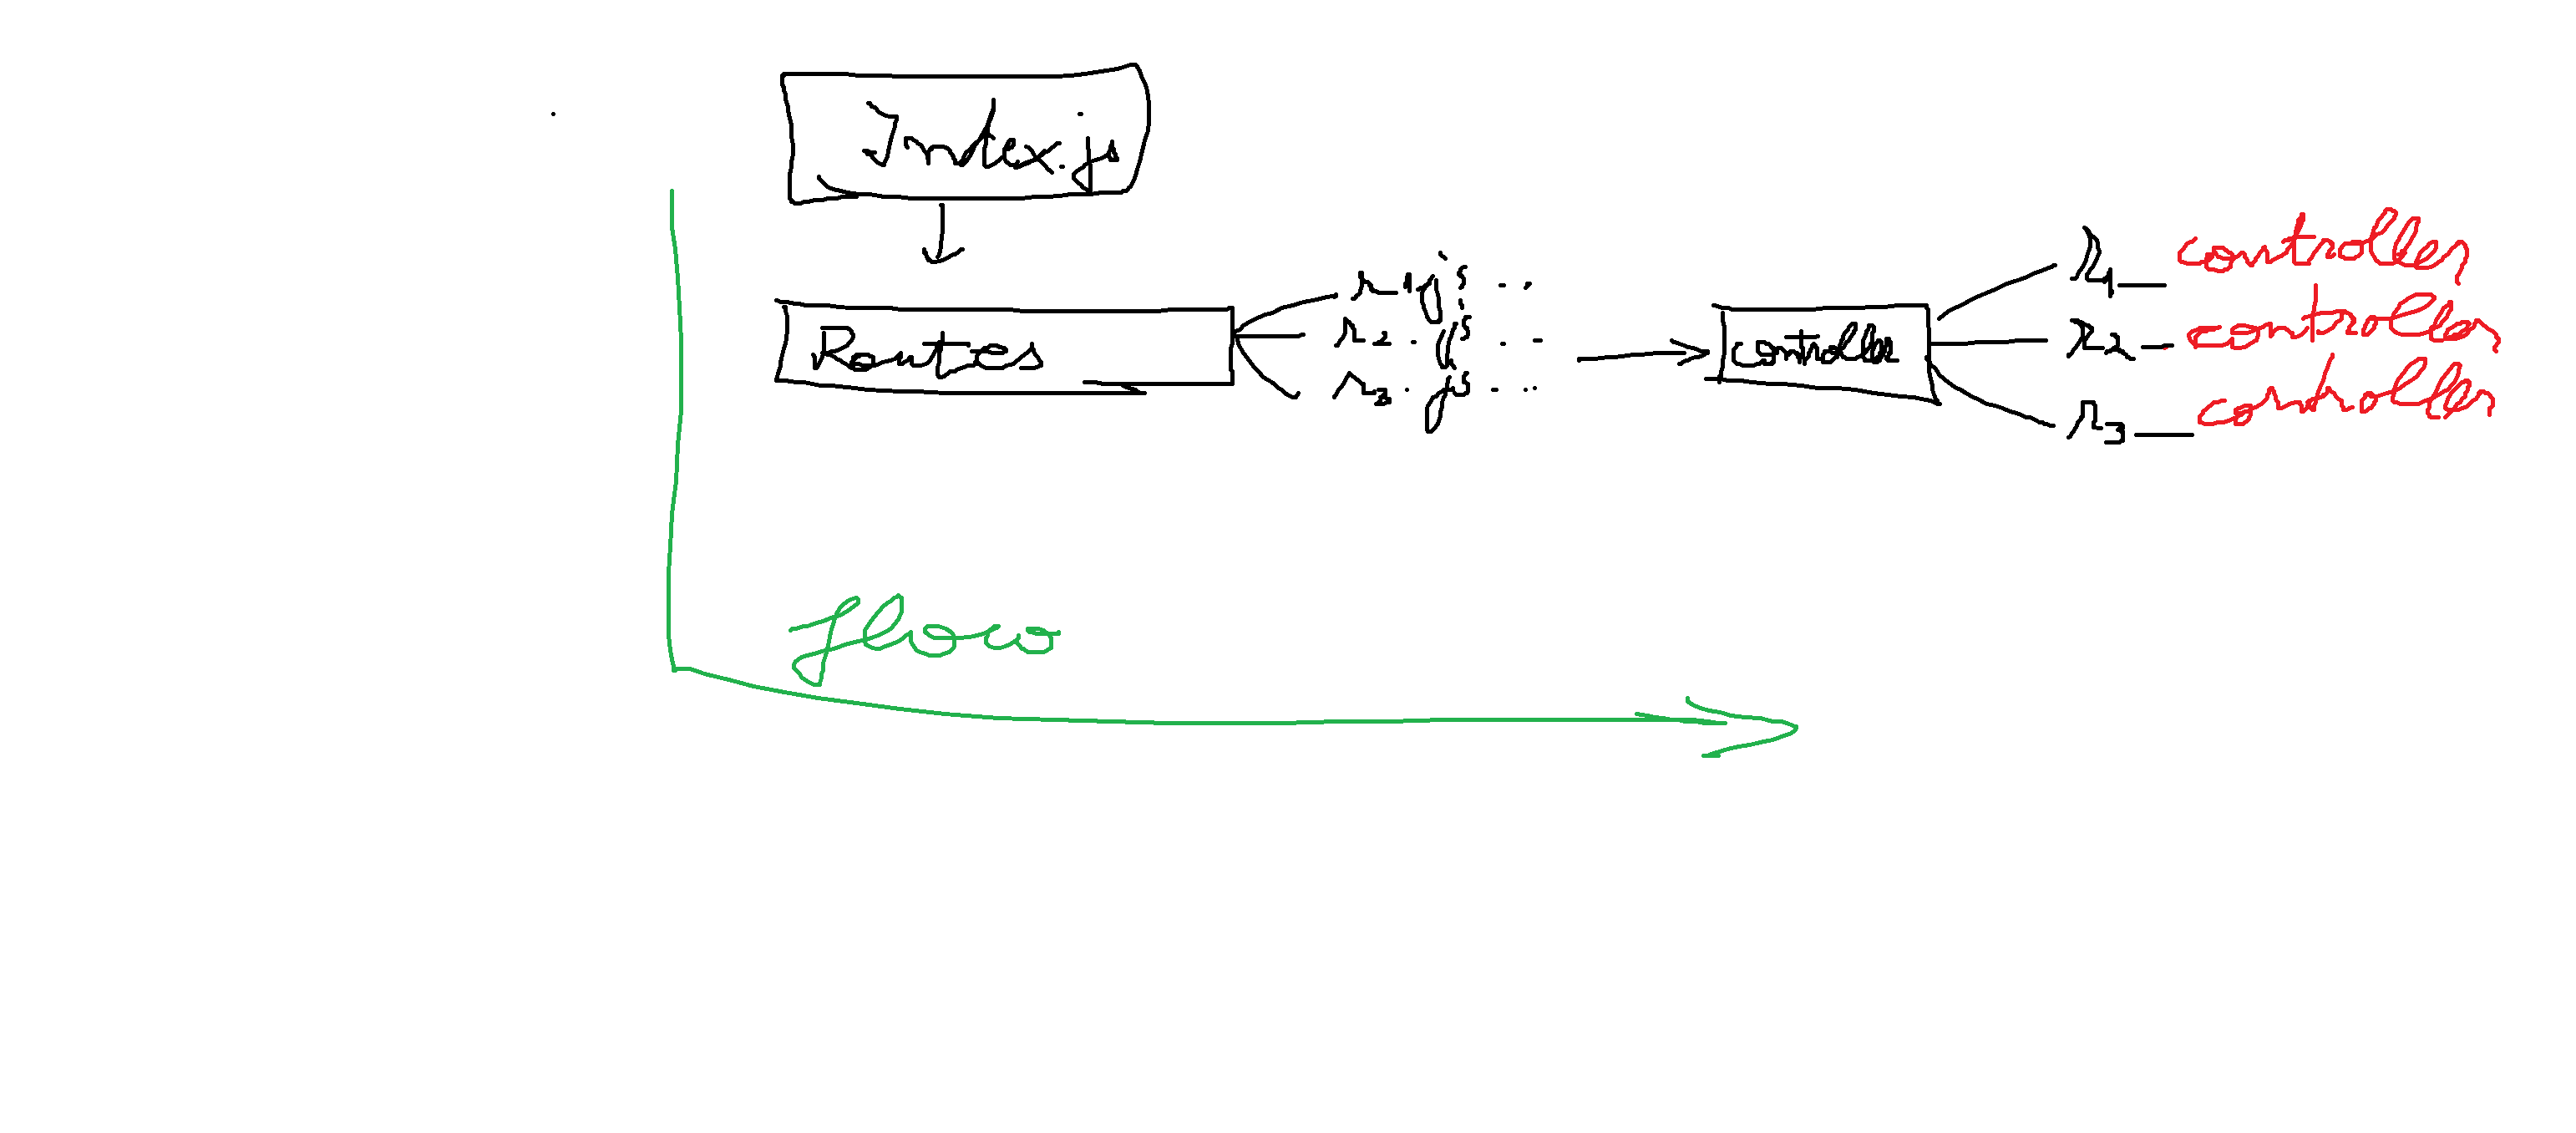 Index.js
Routes
r_1js ..
r2.js ..
r3.js ..
controller
r1_controller
r2_controller
r3_controller
flow